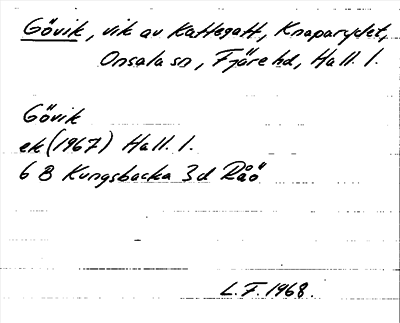 Gövik, vik av Kattegatt, Knaparydet,
Onsala sn, Fjäre hd, Hall. l.
Gövik
ek (1967) Hall. l.
6 B Kungsbacka 3d Råö
L.F. 1968.